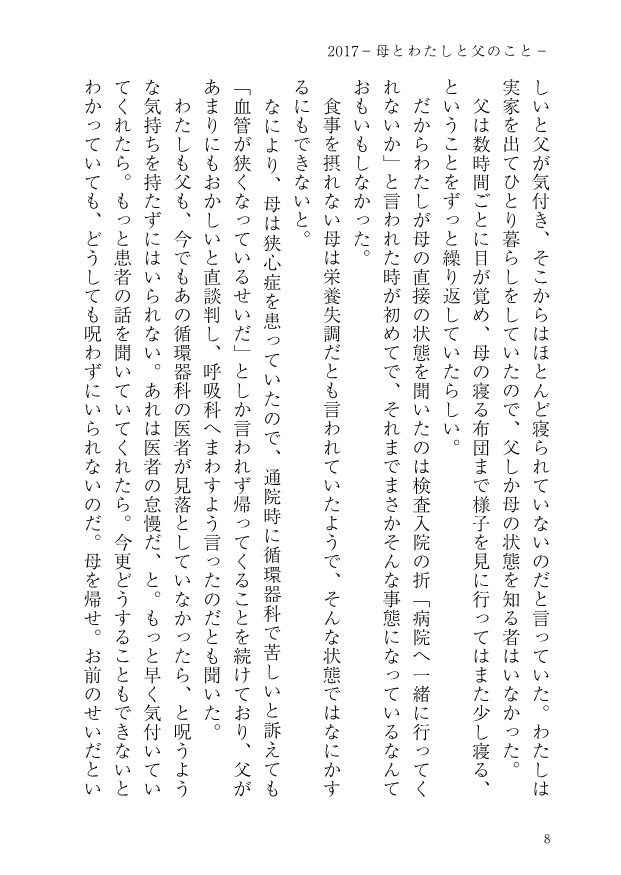 2017－母とわたしと父のこと－
しいと父が気付き、そこからはほとんど寝られていないのだと言っていた。わたしは
実家を出てひとり暮らしをしていたので、父しか母の状態を知る者はいなかった。
父は数時間ごとに目が覚め、母の寝る布団まで様子を見に行ってはまた少し寝る、
ということをずっと繰り返していたらしい。
だからわたしが母の直接の状態を聞いたのは検査入院の折「病院へ一緒に行ってく
れないか」と言われた時が初めてで、それまでまさかそんな事態になっているなんて
おもいもしなかった。
食事を摂れない母は栄養失調だとも言われていたようで、そんな状態ではなにかす
るにもできないと。
なにより、母は狭心症を患っていたので、通院時に循環器科で苦しいと訴えても
「血管が狭くなっているせいだ」としか言われず帰ってくることを続けており、父が
あまりにもおかしいと直談判し、呼吸科へまわすよう言ったのだとも聞いた。
わたしも父も、今でもあの循環器科の医者が見落としていなかったら、と呪うよう
な気持ちを持たずにはいられない。あれは医者の怠慢だ、と。もっと早く気付いてい
てくれたら。もっと患者の話を聞いていてくれたら。今更どうすることもできないと
わかっていても、どうしても呪わずにいられないのだ。母を帰せ。お前のせいだとい
8